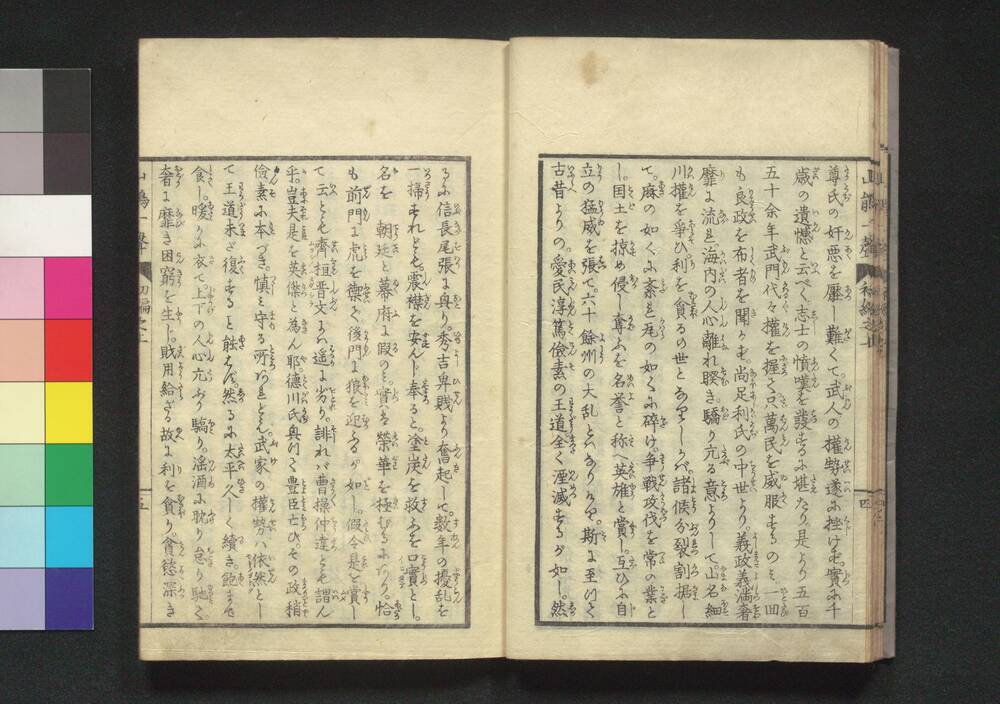 尊氏の奸悪を雁ー難くて。武人の權勢遂に挫けず。實に千
歳の遺憾と云べく志士の憤嘆を護するに堪たり。是より五百
五十余年武門代々權を握て只萬民を威服するのミ一回
も良政を布者を聞かず。尚足利氏の中世より。義政義満奢
靡よ流れ。海内の人心離れ睽き。驕り亢る意よりして。山名細
川權を爭ひ。利を貪るの世となりしかバ。諸候分裂割據し
て。麻の如くに紊れ。瓦の如くに碎け。争戦攻伐を常の業と
し。国土を掠め侵し奪ふを名誉と称へ英雄と賞し。互ひに自
立の猛威を張て。六十餘州の大乱とハなりける。斯に至つて
古昔よりの愛民淳篤儉素の王道全く湮滅するが如し。然
るに信長尾張に舟り。秀吉卑賤より奮起して。数年の擾乱を
一掃すれども。震襟を安んじ奉ると。塗炭を救ふを口實とし。
名を 朝廷と幕府に假のミ。實ハ榮華を極むるに在り。恰
も前門に虎を禦ぎ後門に狼を迎ふるが如し。假令是を賞し
て云とも。齊桓晋文にハ遥よ劣り。誹れバ曹操仲達とも謂ん
乎。豈夫是を英傑と為ん耶。德川氏興つて豊臣亡び。その政稍
儉素に本づき。慎ミ守る所あれども。武家の權勢ハ依然とし
て王道未ざ復すること能はず。然るに太平久しく續き。飽まで
食し。暖かに衣て。上下の人心亢ぶり驕り。滛酒に耽り怠り馳て
奢よ靡き困窮を生じ。財用給ざる故に利を貪り。貪慾深き
初編
四
五